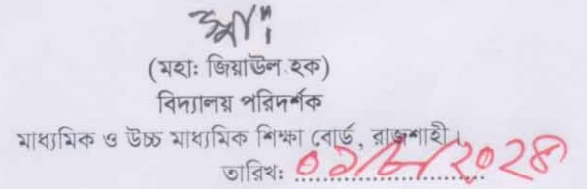 (মহা: জিয়াউল হক)
বিদ্যালয় পরিদর্শক
মাধ্যমিক ও উচ্চ মাধ্যমিক শিক্ষা বোর্ড, রাজশাহী।
তারিখ: